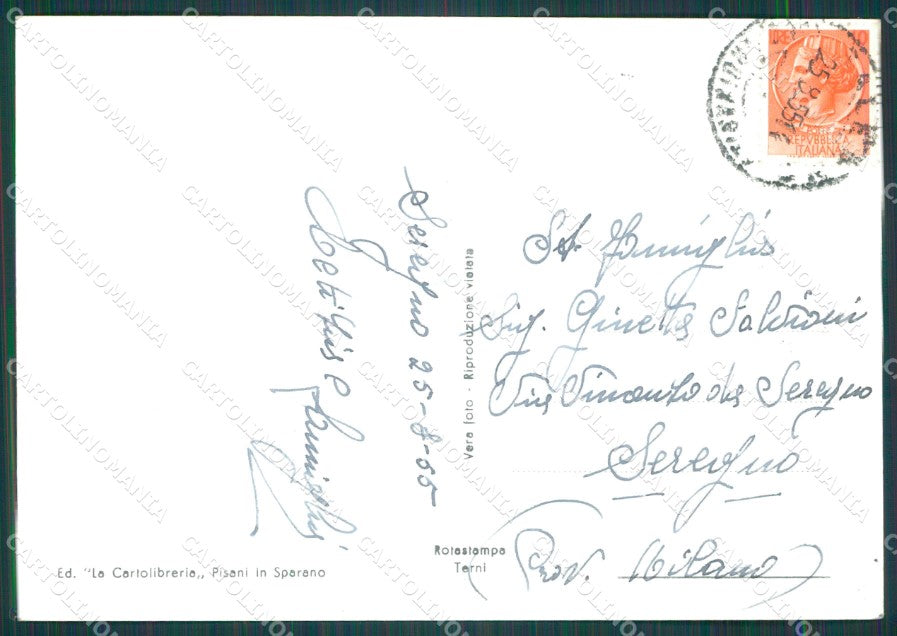 25.8.55
POSTE
REPVBBLICA
ITALIANA
Seregno 25-8-55
Letizia e famiglia
Vera foto - Riproduzione vietata
St. Famiglia
Sig. Ginetta Saldrini
Via Vincenzo da Seregno
Seregno
(Prov. Milano)
Rotastampa
Terni
Ed. "La Cartolibreria,, Pisani in Sparano
CARTOLINOMANIA